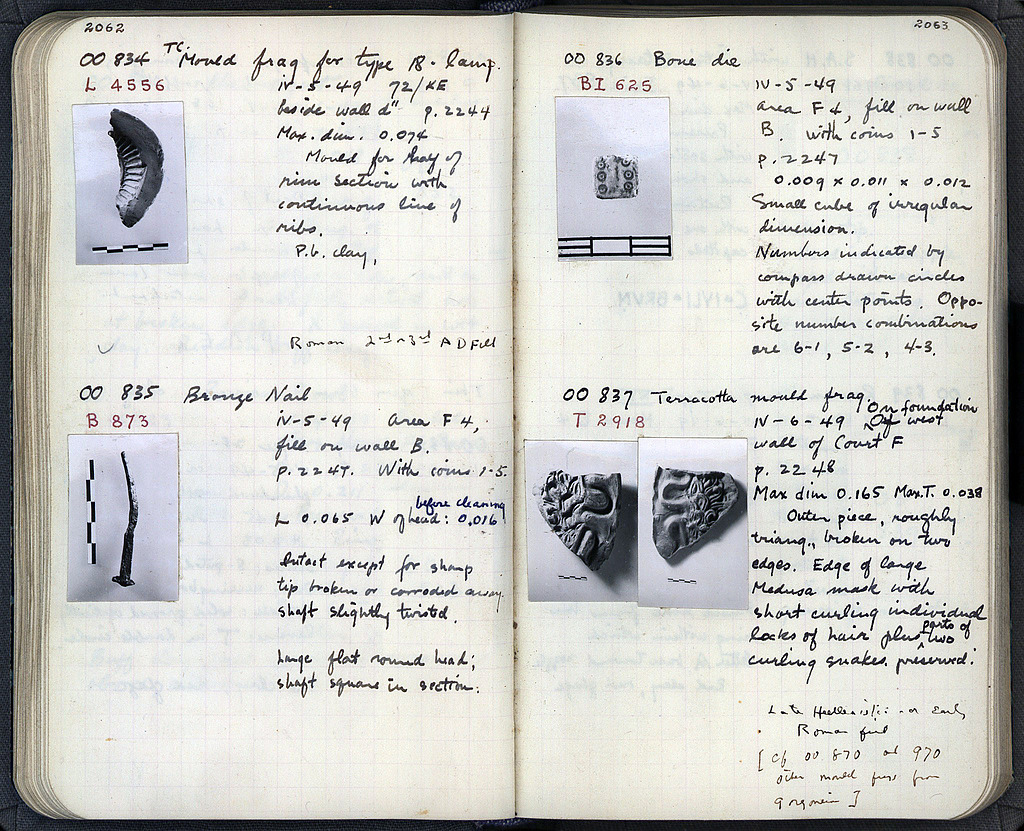 2062
OO 834 TC. Mould frag for type 18 lamp.
L 4556
IV-5-49 72/KE
beside wall d" p. 2244
Max. dim. 0.074
Mould for half of
rim section with
continuous line of
ribs.
P.b. clay,
Roman 2nd-3rd AD Fill
OO 835 Bronze Nail
B 873
IV-5-49 Area F 4,
fill on wall B.
p. 2247. With coins 1-5.
before cleaning
L 0.065 W of head: 0.016
Intact except for sharp
tip broken or corroded away.
shaft slightly twisted.
Large flat round head;
shaft square in section.
2063
OO 836 Bone die
BI 625
IV-5-49
Area F 4, fill on wall
B with coins 1-5
p. 2247
0.009 x 0.011 x 0.012
Small cube of irregular
dimension.
Numbers indicated by
compass drawn circles
with center points. Oppo-
site number combinations
are 6-1, 5-2, 4-3.
OO 837 Terracotta mould frag.
T 2918
On foundation
IV-6-49 Of west
wall of Court F
p. 2248
Max dim 0.165 Max.T. 0.038
Outer piece, roughly
triang., broken on two
edges. Edge of large
Medusa mask with
short curling individual
locks of hair plus parts of two
curling snakes preserved.
Late Hellenistic or Early
Roman fill
[Cf OO 870 and 970
other mould frags from
gorgoneia]